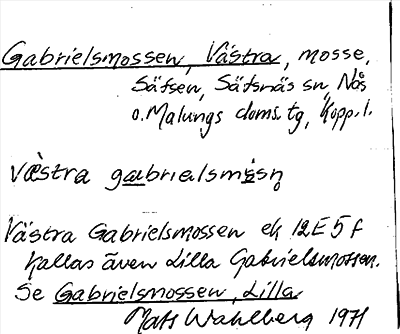 Gabrielsmossen, Västra, mosse,
Säfsen, Säfsnäs sn, Nås
o. Malungs doms. tg, Kopp. l.
Västra Gabrielsmossen ek 12E5f
kallas även Lilla Gabrielsmossen.
Se Gabrielsmossen, Lilla
Mats Wahlberg 1971